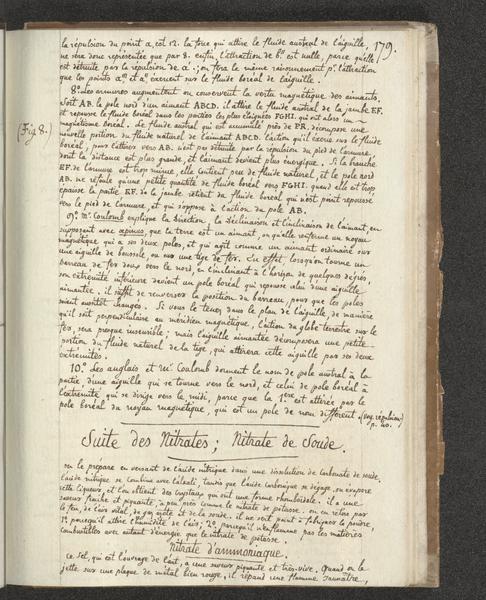 179.
la répulsion du point a, est 12. la force qui attire le fluide austral de l'aiguille,
ne sera donc représentée que par 8. enfin, l'attraction de b'' est nulle, parce qu'elle
est détruite par la répulsion de a'. on fera le même raisonnement pr. l'attraction
que les points a'' et a'' exercent sur le fluide boréal de l'aiguille.
8.° Les armures augmentent ou conservent la vertu magnétique des aimants.
Fig 8.
Soit AB. le pole nord d'un aimant ABCD. il attire le fluide austral de la jambe EF.
et repousse le fluide boréal dans les parties les plus éloignées FGHI. qui ont alors un
magnétisme boréal. Le fluide austral qui est accumulé près de PR. décompose une
nouvelle portion du fluide naturel de l'aimant ABCD. l'action qu'il exerce sur le fluide
boréal, pour l'attirer vers AB. n'est pas détruite par la répulsion du pied de l'armure,
dont la distance est plus grande, et l'aimant devient plus énergique. Si la branche
EF. de l'armure est trop mince, elle contient peu de fluide naturel, et le pole nord
AB. ne refoule qu'une petite quantité de fluide boréal vers FGHI. quand elle est trop
épaisse la partie EF. de la jambe retient du fluide boréal qui n'est point repoussé
vers le pied de l'armure, et qui s'oppose à l'action du pole AB.
9.° Mr. Coulomb explique la Direction, la Déclinaison et l'inclinaison de l'aimant, en
supposant avec æpinus, que la terre est un aimant, ou qu'elle renferme un noyau
magnétique qui a ses deux poles, et qui agit comme un aimant ordinaire sur
une aiguille de boussole, ou sur une tige de fer. En effet, lorsqu'on tourne un
barreau de fer doux vers le nord, en l'inclinant à l'horizon de quelques degrés,
son extrémité inférieure devient un pole boréal qui repousse celui d'une aiguille
aimantée. il suffit de renverser la position du barreau, pour que les poles
soient aussitôt changés. Si vous le tenez dans le plan de l'aiguille, de manière
qu'il soit perpendiculaire au méridien magnétique, l'action du globe terrestre sur le
fer, sera presque insensible; mais l'aiguille aimantée décomposera une petite
portion du fluide naturel de la tige, qui attirera cette aiguille par ses deux
extrémités.
10.° Les anglais et Mr. Coulomb donnent le nom de pole austral à la
partie d'une aiguille qui se tourne vers le nord, et celui de pole boréal à
l'extrémité qui se dirige vers le midi, parce que la 1ere est attirée par le
pole boréal du noyau magnétique, qui est un pole de nom différent.
Suite des Nitrates; Nitrate de Soude.
on le prépare en versant de l'acide nitrique dans une dissolution de carbonate de soude.
l'acide nitrique se combine avec l'alcali, tandis que l'acide carbonique se dégage. on évapore
cette liqueur, et l'on obtient des cristaux qui ont une forme rhomboïdale. il a une
saveur fraîche et piquante, à peu près comme le nitrate de potasse. on en retire par
le feu, de l'air vital, du gaz azote et de la soude. il ne sert point à fabriquer la poudre,
1.° parcequ'il attire l'humidité de l'air; 2.° parcequ'il n'enflamme pas les matières
combustibles avec autant d'énergie que le nitrate de potasse.
Nitrate d'ammoniaque.
Ce sel, qui est l'ouvrage de l'art, a une saveur piquante et très-vive. Quand on le
jette sur une plaque de métal bien rouge, il répand une flamme jaunâtre,